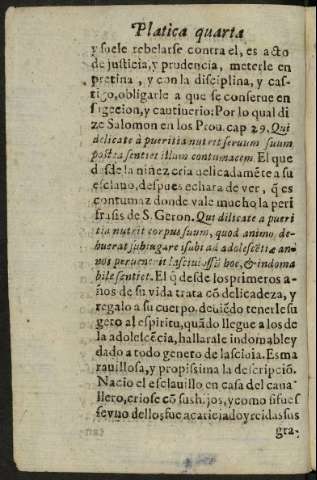 Platica quarta
y suele rebelarse contra el, es acto
de justicia, y prudencia, meterle en
pretina, y con la disciplina, y cas-
tigo, obligarle a que se conserue en
sugecion, y cautiuerio: Por lo qual di
ze Salomon en los Prou. cap 29. Qui
delicate à pueritia nutrit seruum suum
postea sentiet illum contumacem. El que
desde la niñez cria delicadamẽte a su
esclauo, despues echara de ver, q̃ es
contumaz donde vale mucho la peri
frasis de S. Geron. Qui dilicate a pueri
tia nutrit corpus suum, quod animo, de-
buerat subiugare isubi ad adolescẽtiæ an-
nos peruenerit lasciui ossũ hoc, & indoma
bile sentiet. El q̃ desde los primeros a-
ños de su vida trata cõ delicadeza, y
regalo a su cuerpo, deuiẽdo tenerle su
geto al espiritu, quãdo llegue a los de
la adolescẽcia, hallarale indomable y
dado a todo genero de lasciuia. Es ma
rauillosa, y propissima la descripciõ.
Nacio el esclauillo en casa del caua
llero, criose cõ sus hijos, y como si fues
se vno dellos, fue acariciado y reidas sus
gra-